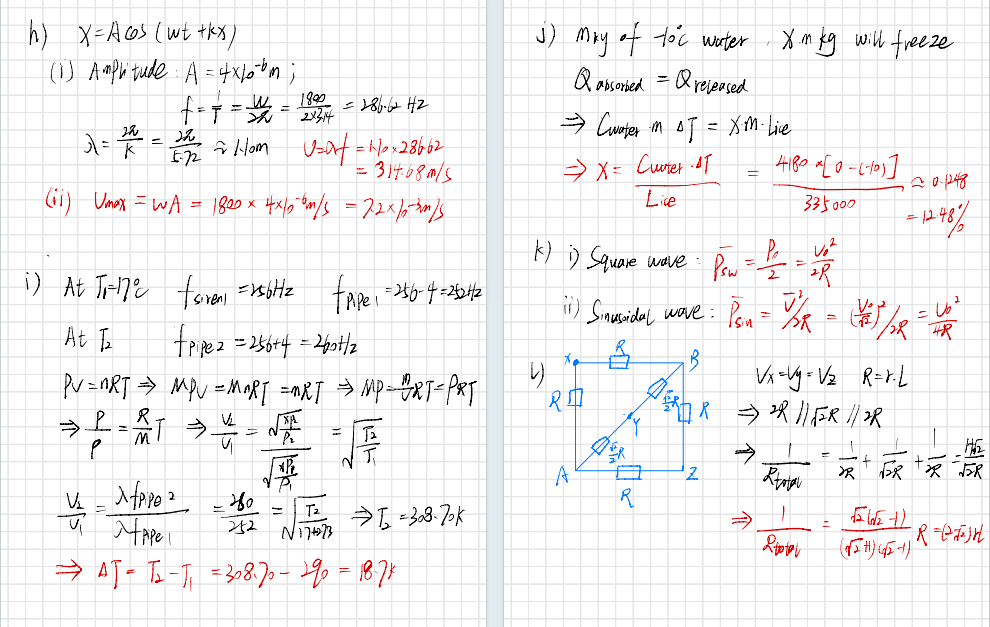 h) x = A cos (wt + kx)
(i) Amplitude: A = 4×10⁻⁶m ;
f = 1/T = w/2π = 1800/2×3.14 = 286.62 Hz
λ = 2π/k = 2π/5.72 ≈ 1.10m v=λf = 1.10×286.62
= 314.08 m/s
(ii) Umax = wA = 1800 × 4×10⁻⁶m/s = 7.2×10⁻³m/s
i) At T₁=17°C f siren1 = 256Hz f pipe1 = 256-4=252Hz
At T₂ f pipe2 = 256+4 = 260Hz
PV=nRT ⇒ MPV = MnRT = mRT ⇒ MP = m/V RT = ρRT
⇒ P/ρ = R/M T ⇒ V₂/V₁ = √(γP₂/ρ₂) / √(γP₁/ρ₁) = √(T₂/T₁)
V₂/V₁ = λf pipe2 / λf pipe1 = 260/252 = √(T₂/17+273) ⇒ T₂ = 308.70K
⇒ ΔT = T₂-T₁ = 308.70 - 290 = 18.7K
j) m kg of -10°C water . X·m kg will freeze
Q absorbed = Q released
⇒ Cwater m ΔT = X·m·Lice
⇒ X = Cwater·ΔT / Lice = 4180 ×[0-(-10)] / 335000 ≈ 0.1248
= 12.48%
k) i) Square wave : P̄sw = P₀/2 = V₀²/2R
ii) Sinusoidal wave : P̄sin = V̄²/2R = (V₀/√2)²/2R = V₀²/4R
l)
X R B
R √2/2 R R
Y
√2/2 R
A R Z
Vx=Vy=Vz R=r·L
⇒ 2R // √2R // 2R
⇒ 1/Rtotal = 1/2R + 1/√2R + 1/2R = 1+√2/√2R
⇒ 1/Rtotal = √2(√2-1)/(√2+1)(√2-1) R = (2-√2)rL